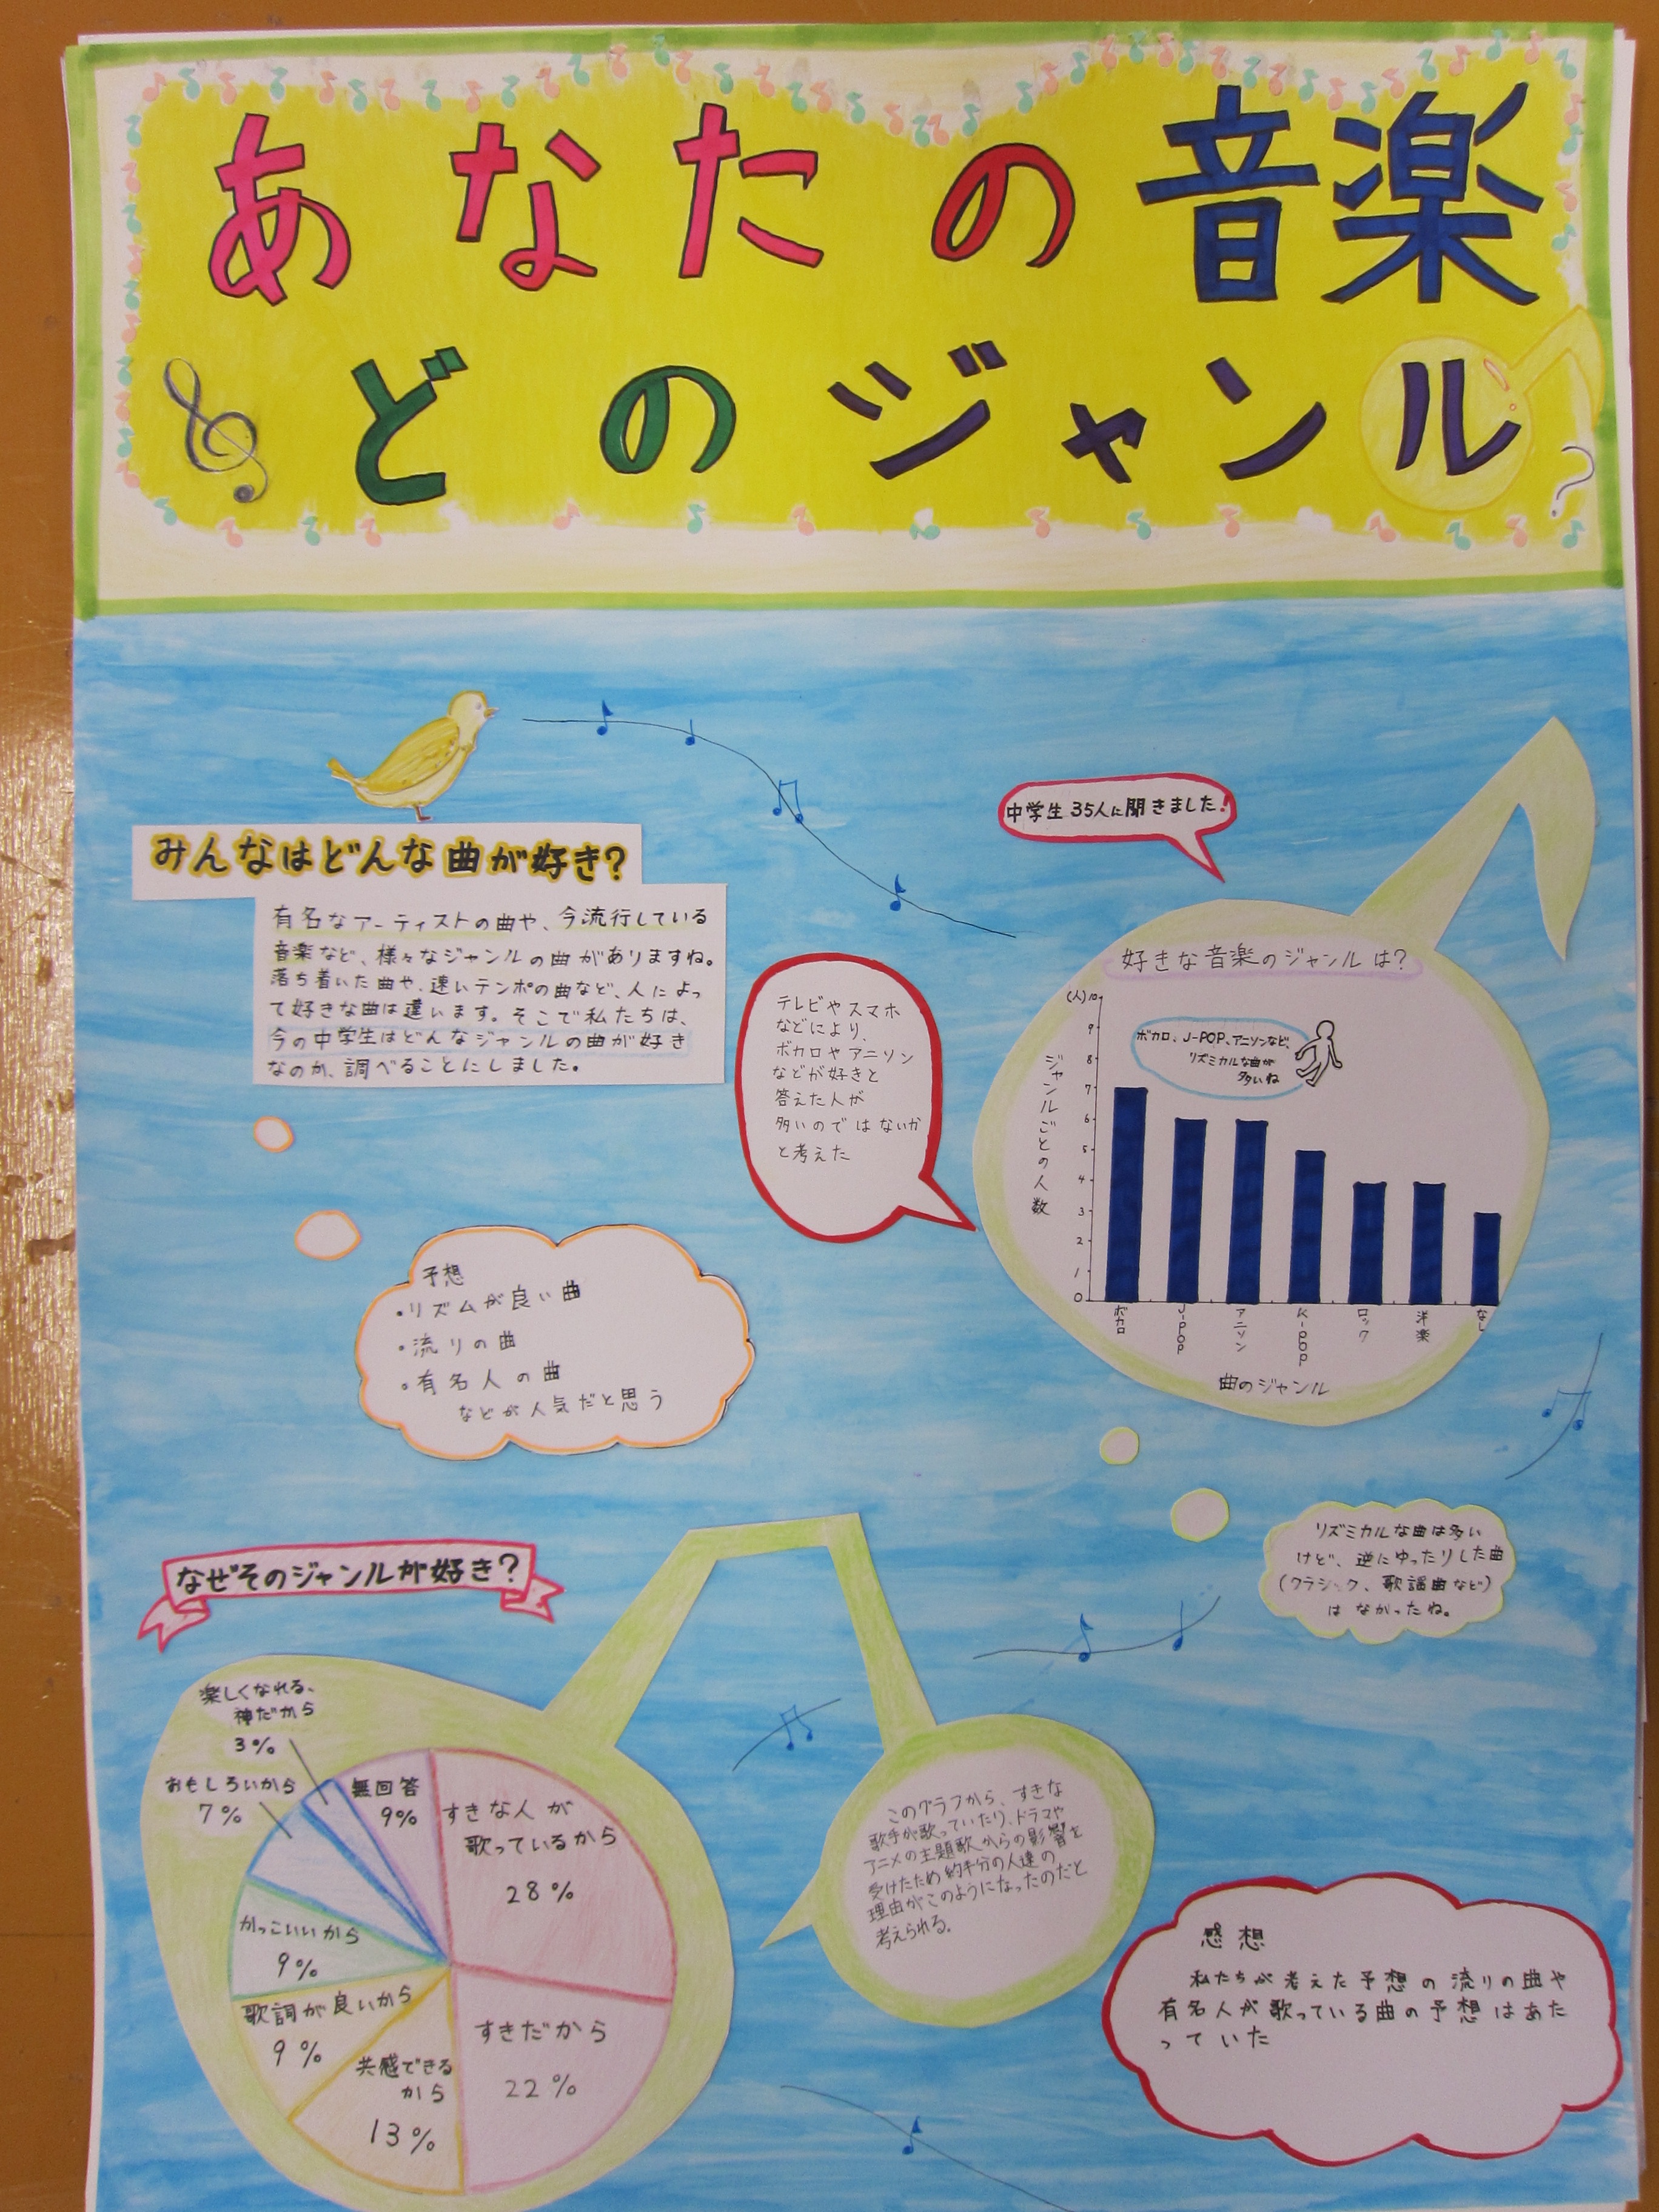 あなたの音楽
どのジャンル?
みんなはどんな曲が好き?
有名なアーティストの曲や、今流行している
音楽など、様々なジャンルの曲がありますね。
落ち着いた曲や、速いテンポの曲など、人によっ
て好きな曲は違います。そこで私たちは、
今の中学生はどんなジャンルの曲が好き
なのか、調べることにしました。
予想
・リズムが良い曲
・流りの曲
・有名人の曲
などが人気だと思う
中学生35人に聞きました!
テレビやスマホ
などにより、
ボカロやアニソン
などが好きと
答えた人が
多いのではないか
と考えた
好きな音楽のジャンルは?
(人)
10
9
8
7
6
5
4
3
2
1
0
ジャンルごとの人数
ボカロ、J-POP、アニソンなど、
リズミカルな曲が
多いね
ボカロ
J-POP
アニソン
K-POP
ロック
洋楽
なし
曲のジャンル
リズミカルな曲は多い
けど、逆にゆったりした曲
(クラシック、歌謡曲など)
はなかったね。
なぜそのジャンルが好き?
楽しくなれる、
神だから
3%
おもしろいから
7%
無回答
9%
すきな人が
歌っているから
28%
かっこいいから
9%
歌詞が良いから
9%
共感できる
から
13%
すきだから
22%
このグラフから、すきな
歌手が歌っていたり、ドラマや
アニメの主題歌からの影響を
受けたため約半分の人達の
理由がこのようになったのだと
考えられる。
感想
私たちが考えた予想の流りの曲や
有名人が歌っている曲の予想はあた
っていた